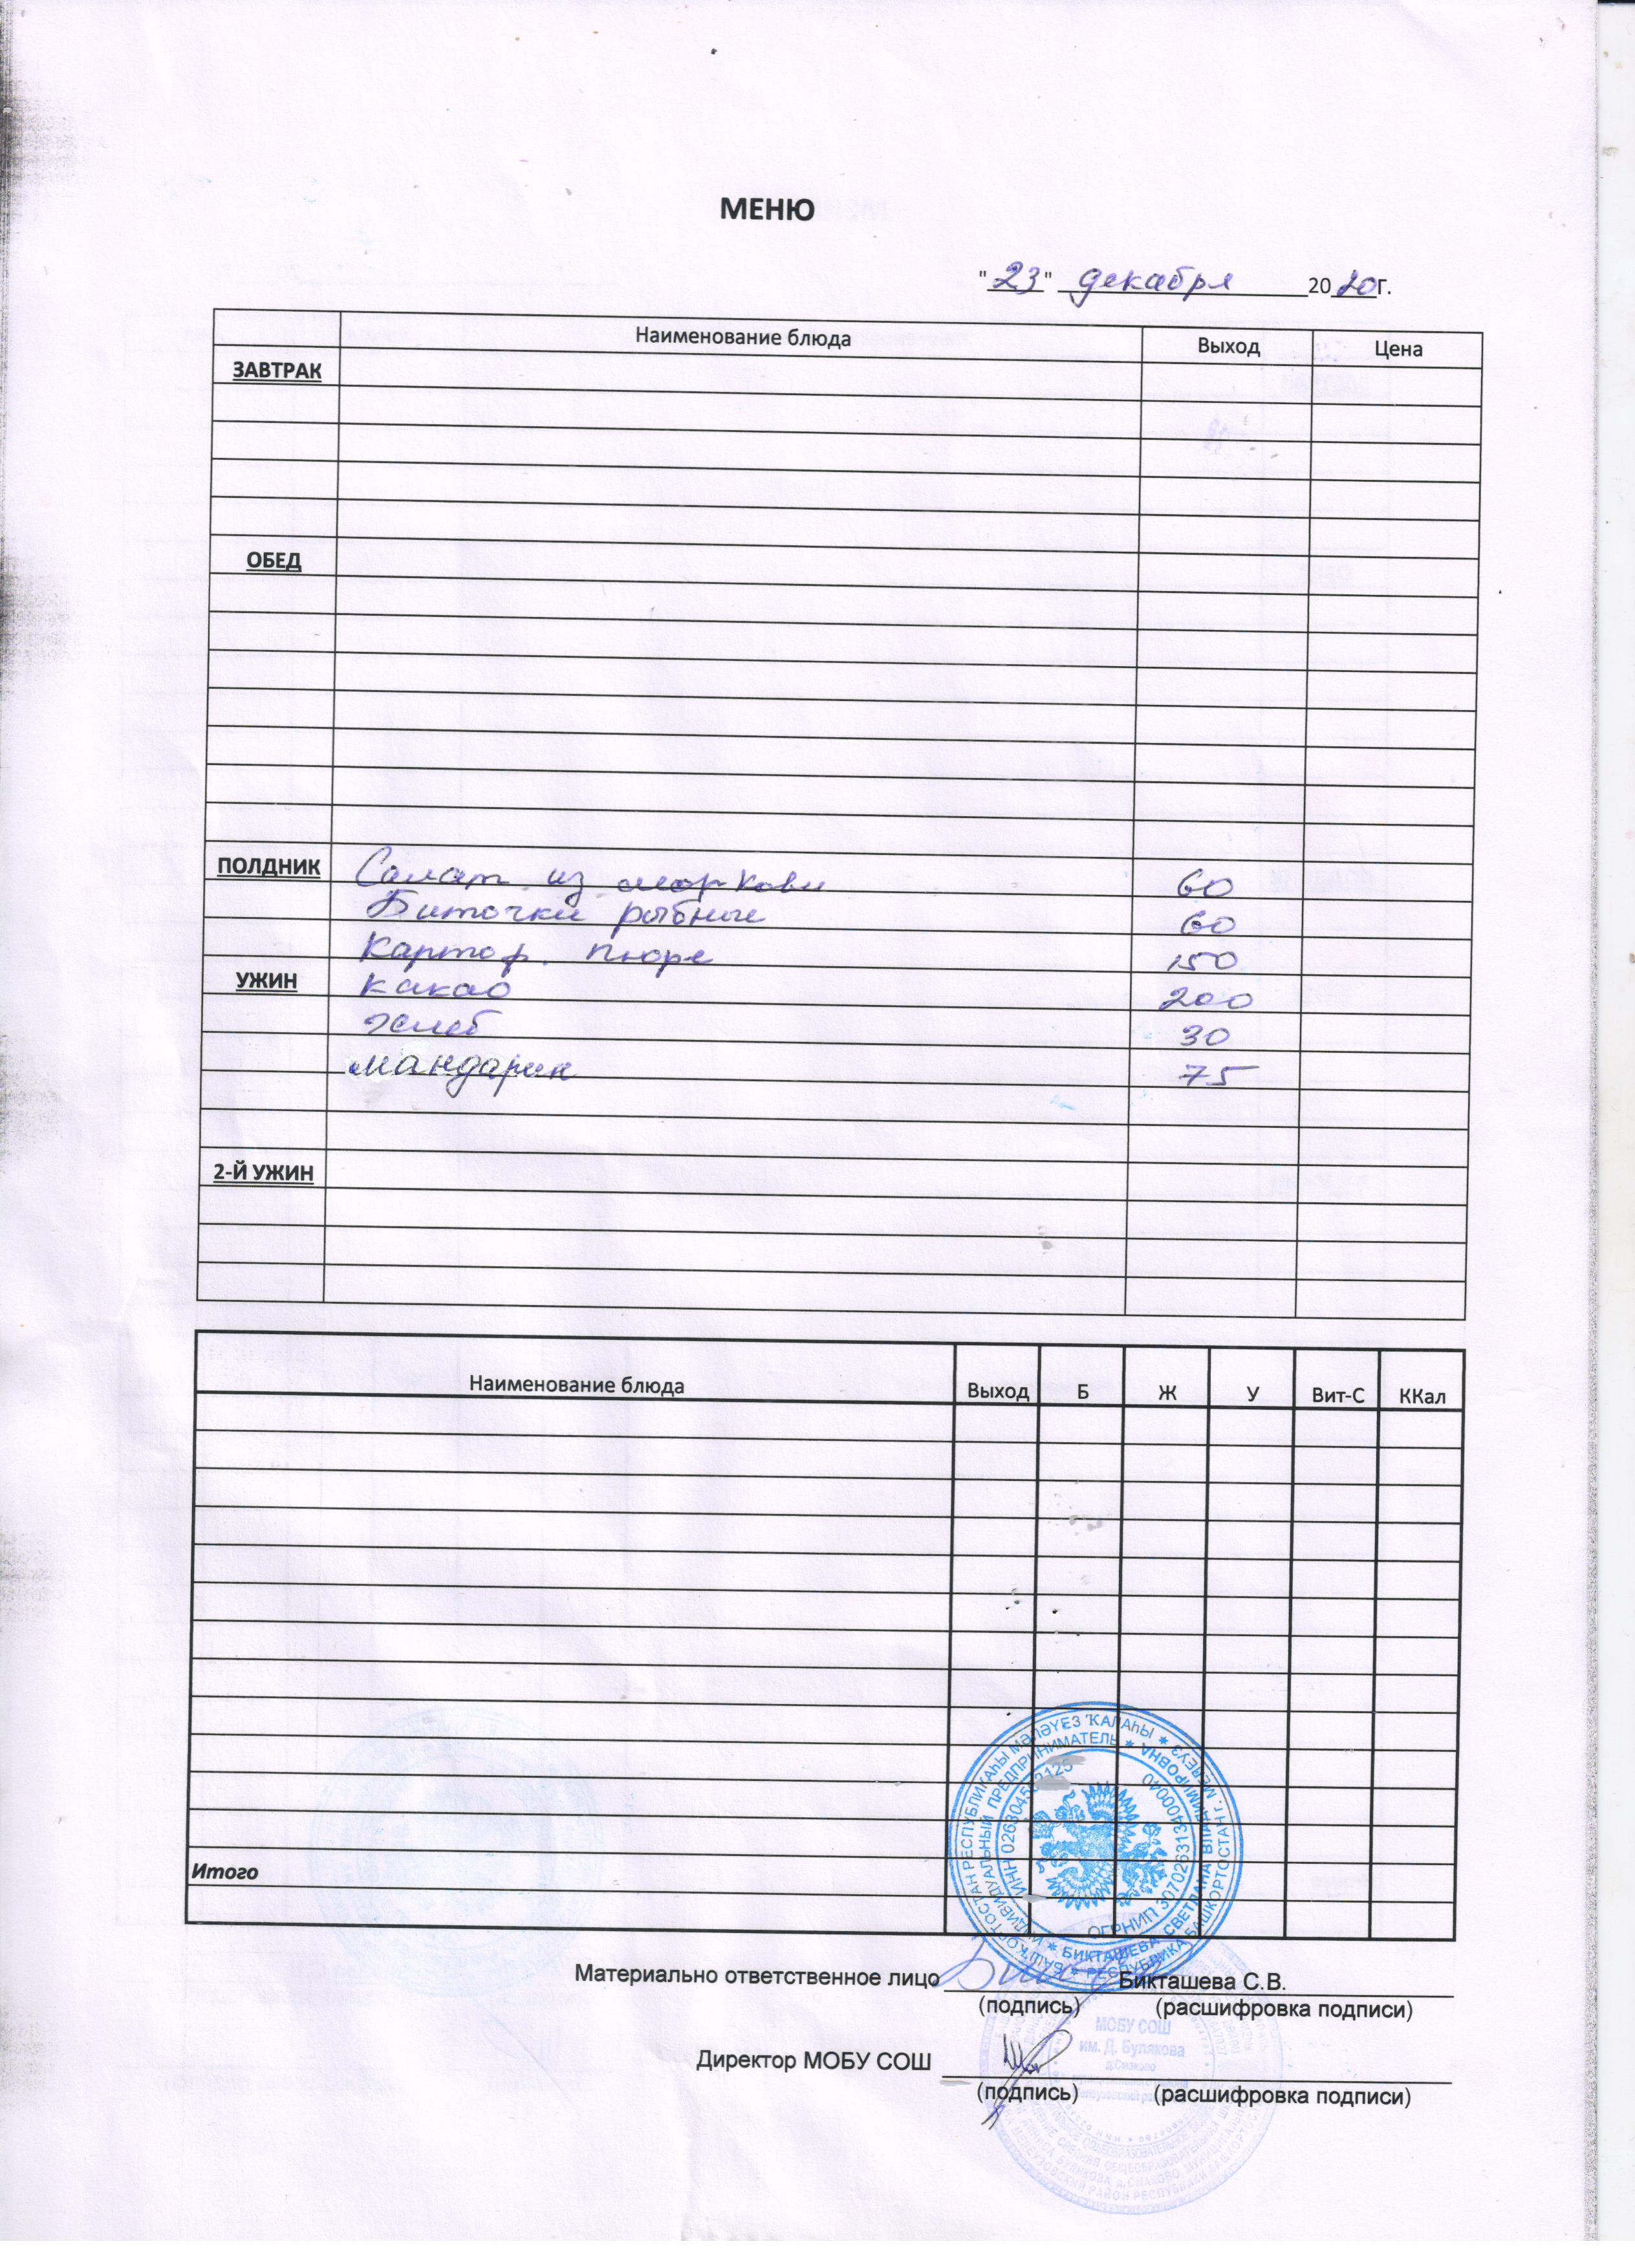 МЕНЮ
"23" декабря 2020г.
Наименование блюда Выход Цена
ЗАВТРАК
ОБЕД
ПОЛДНИК Салат из моркови 60
Биточки рыбные 60
Картоф. пюре 150
УЖИН какао 200
хлеб 30
мандарин 75
2-Й УЖИН
Наименование блюда Выход Б Ж У Вит-С ККал
Итого
БАШҠОРТОСТАН РЕСПУБЛИКАҺЫ МӘЛӘҮЕЗ ҠАЛАҺЫ * РЕСПУБЛИКА БАШКОРТОСТАН г. МЕЛЕУЗ *
ИНДИВИДУАЛЬНЫЙ ПРЕДПРИНИМАТЕЛЬ * БИКТАШЕВА СВЕТЛАНА ВЛАДИМИРОВНА *
ИНН
ОГРНИП
Материально ответственное лицо Бикташева С.В.
(подпись) (расшифровка подписи)
МОБУ СОШ
им. Д. Булякова
Директор МОБУ СОШ
(подпись) (расшифровка подписи)